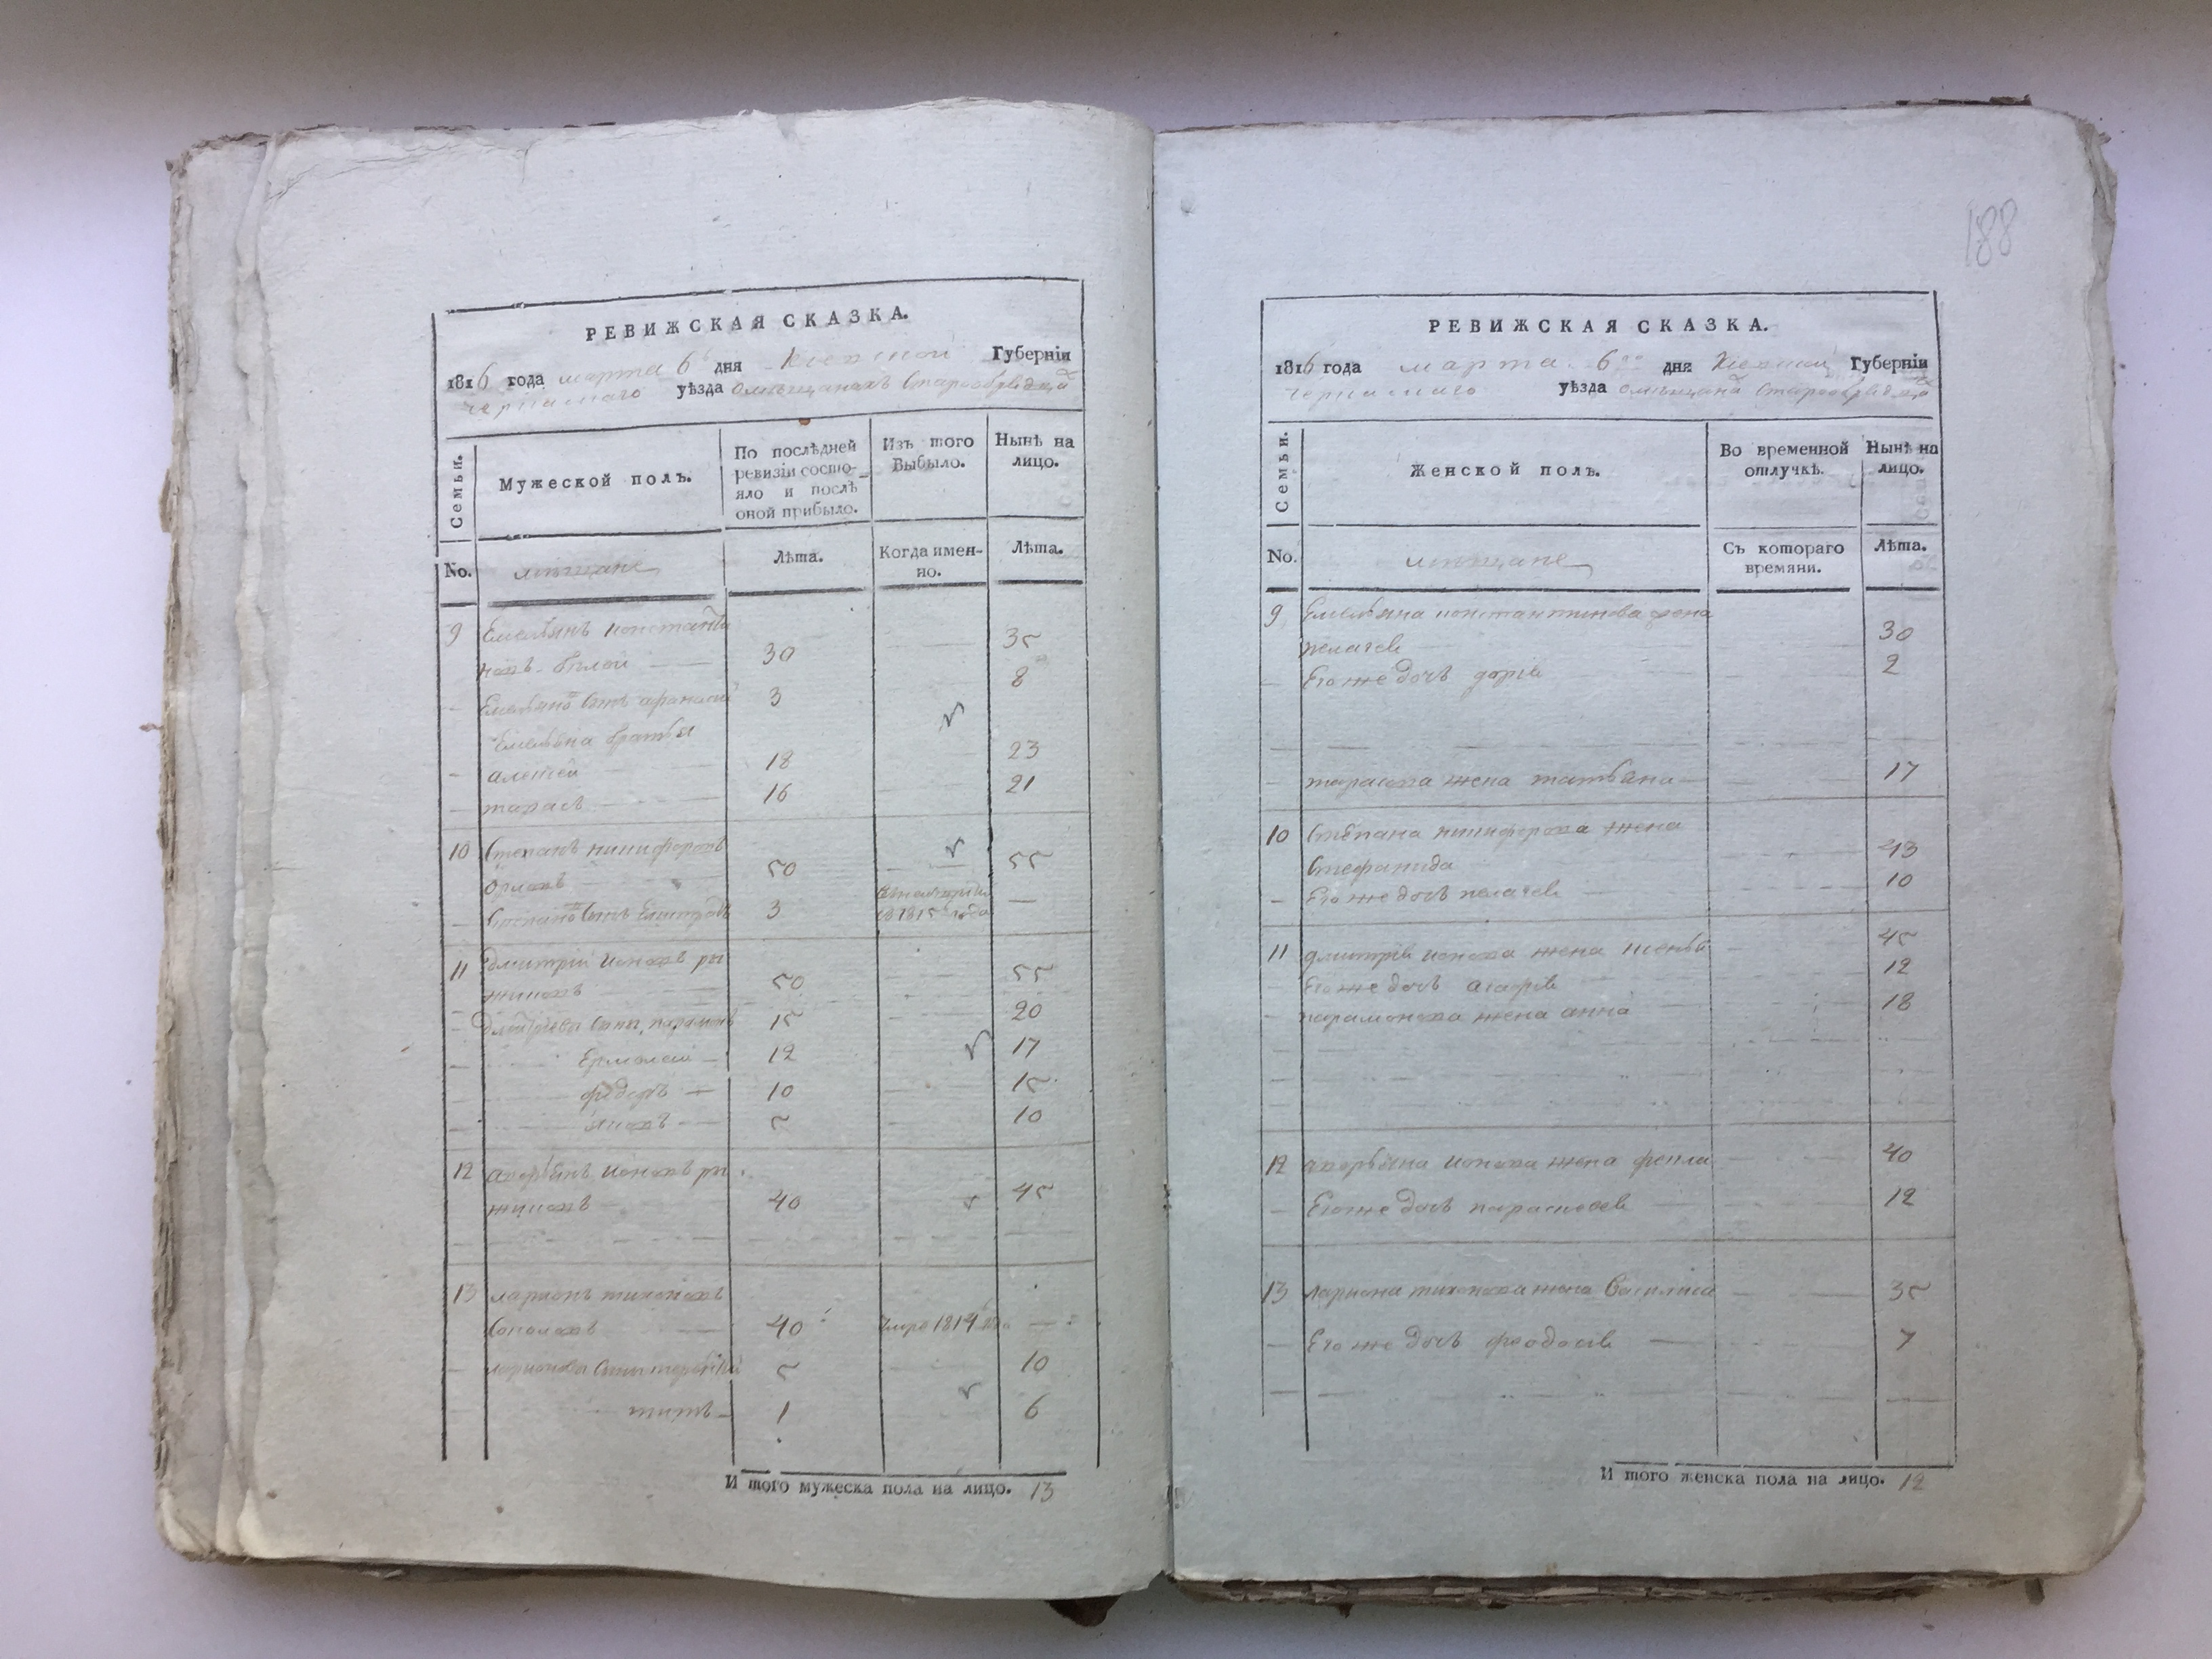 РЕВИЖСКАЯ СКАЗКА.
1816 года марта 6 дня Киевской Губернїи
Черкаскаго уѣзда Омѣщанахъ Старообрядцахъ
Семьи.
Мужеской полъ.
По послѣдней ревизїи состо-
яло и послѣ
оной прибыло.
Изъ того Выбыло.
Нынѣ на лицо.
No.
мѣщане
Лѣта.
Когда имен-
но.
Лѣта.
9 Емельянъ константи
новъ Бѣлой 30 35
Емельяновъ Сынъ афанасий 3 8
Емельяна братья
алексей 18 23
тарасъ 16 21
10 Степанъ никифоровъ
Орловъ 50 55
Степановъ Сынъ 3 1815 года —
11 Дмитрий ионовъ ры
жиковъ 50 55
Дмитриевы Сыны, парамонъ 15 20
Ермолай 12 17
федоръ 10 15
яковъ 5 10
12 аверьянъ ионовъ ры
жиковъ 40 45
13 ларионъ тихоновъ
Соколовъ 40 Умре 1814 —
ларионовы Сыны 5 10
титъ 1 6
И того мужеска пола на лицо. 13
188
РЕВИЖСКАЯ СКАЗКА.
1816 года марта 6го дня Киевской Губернїи
Черкаскаго уѣзда Омѣщанахъ Старообрядцахъ
Семьи.
Женской полъ.
Во временной отлучкѣ.
Нынѣ на лицо.
No.
мѣщане
Съ котораго
времяни.
Лѣта.
9 Емельяна константинова жена
пелагея 30
Его же дочь дарья 2
тарасова жена татьяна 17
10 Степана никифорова жена
Стефанида 43
Его же дочь пелагея 10
11 дмитрия ионова жена 45
Его же дочь 12
парамонова жена анна 18
12 аверьяна ионова жена фекла 40
Его же дочь парасковея 12
13 лариона тихонова жена Василиса 35
Его же дочь феодосия 7
И того женска пола на лицо. 12